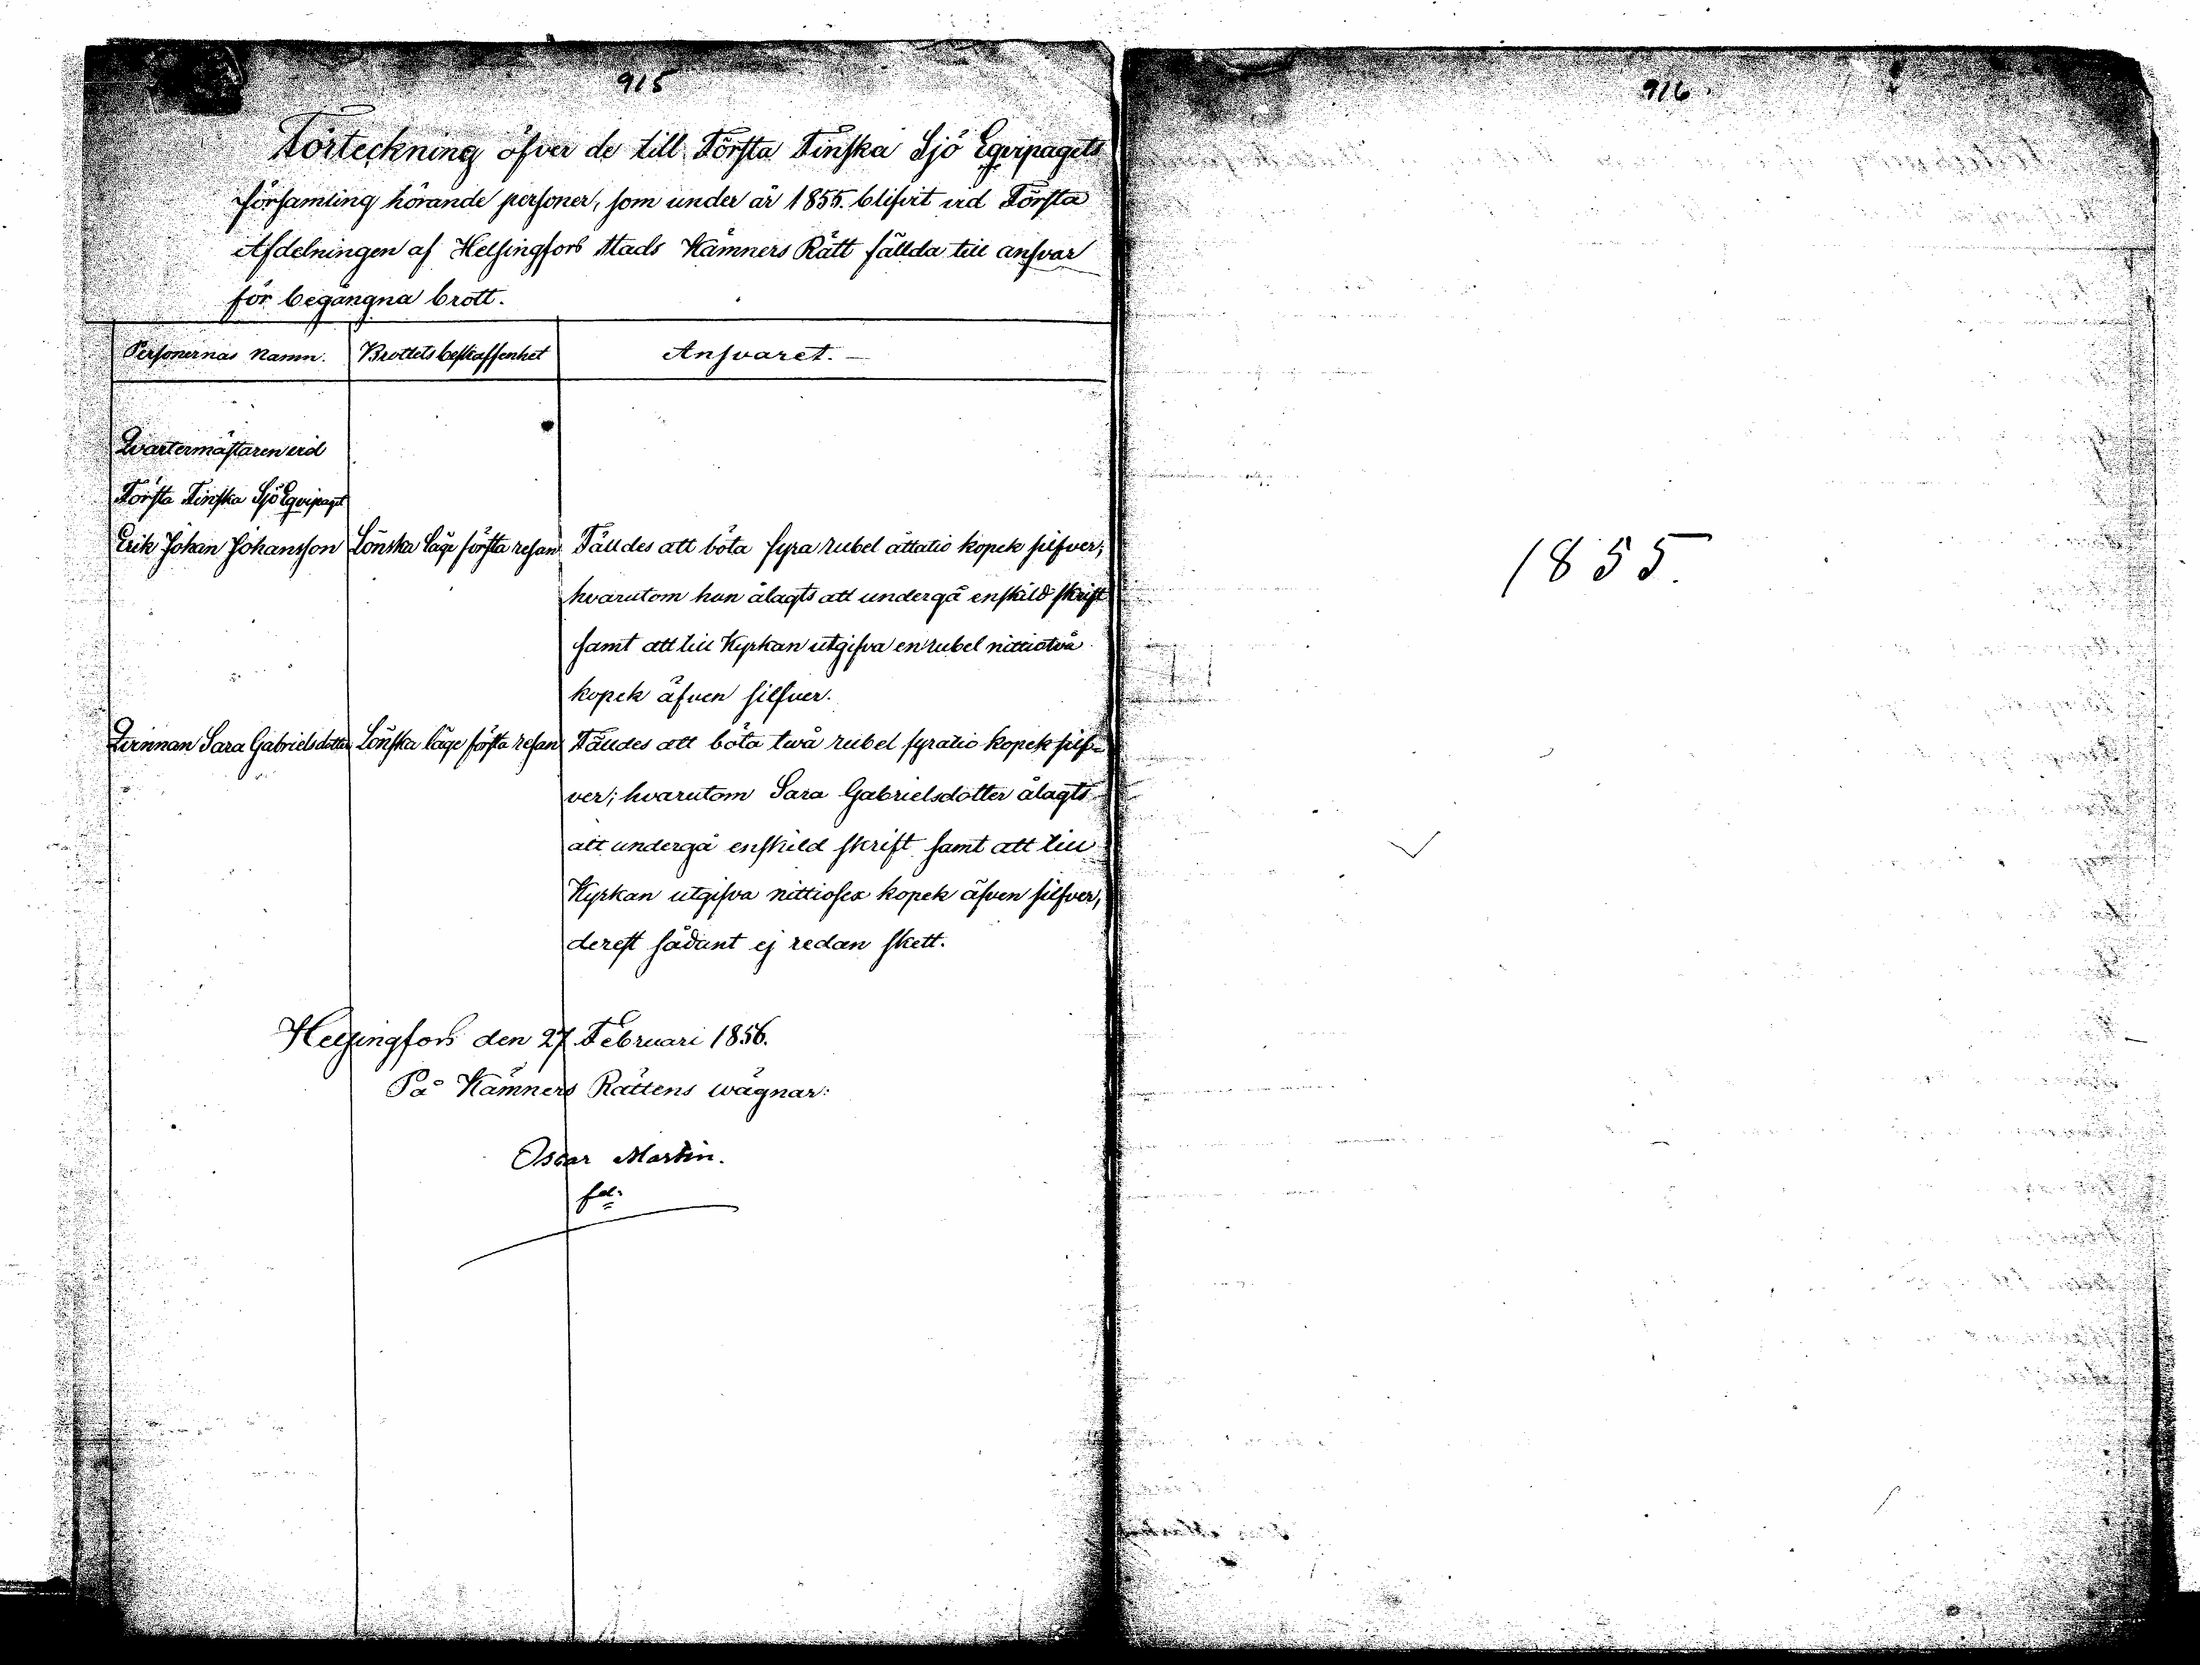 915
Förteckning öfver de till Första Finska Sjö Eqvipagets
församling hörande personer, som under år 1855. blifvit vid Första
Afdelningen af Helsingfors Stads Kämners Rätt fällda till ansvar
för begångna brott.
Personernas Namn. Brottets beskaffenhet Ansvaret. —
Qvartermästaren vid
Första Finska Sjö Eqvipaget
Erik Johan Johansson Lönska läge första resan Fälldes att böta fyra rubel åttatio kopek silfver,
hvarutom han ålagts att undergå enskild skrift
samt att till Kyrkan utgifva en rubel nittiotvå
kopek äfven silfver.
Qvinnan Sara Gabrielsdotter Lönska läge första resan Fälldes att böta två rubel fyratio kopek silf-
ver; hvarutom Sara Gabrielsdotter ålagts
att undergå enskild skrift samt att till
Kyrkan utgifva nittiosex kopek äfven silfver,
derest sådant ej redan skett.
Helsingfors den 27 Februari 1856.
På Kämners Rättens wägnar:
Oscar Martin.
916
1855.